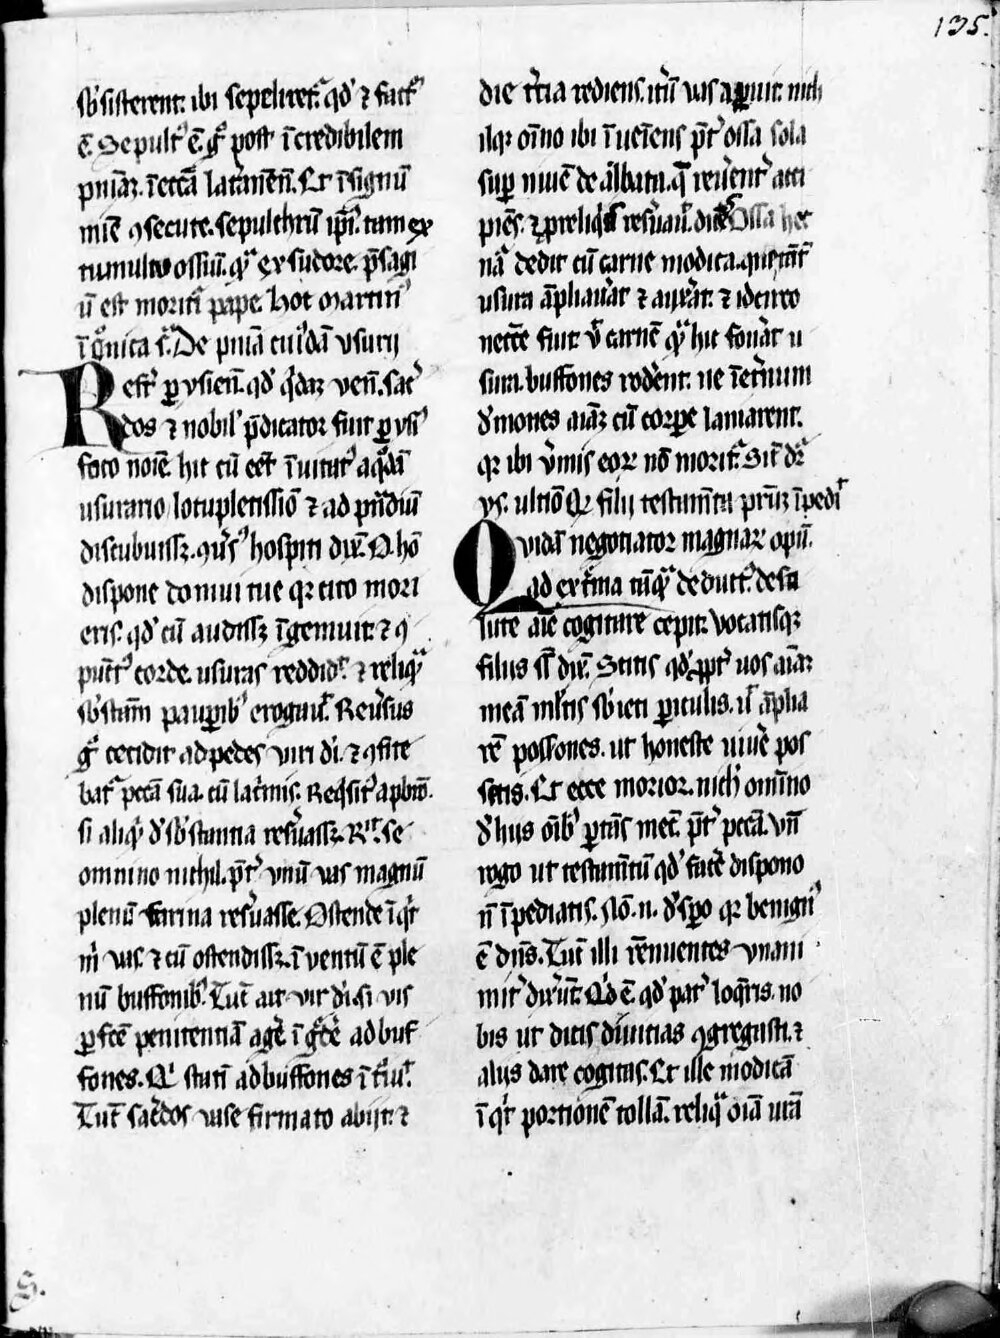 135.
sb̾sisterent. ibi sepeliret᷑. qd̾ ⁊ fact᷒
ē. Sepult᷒ ē. g̊ post īcredibilem
pn̄iaꝫ. ī ecc̄a lat̾anen̄. Et ī signū
mīe ꝯsecute. sepulchrū ip̄i᷒. tam ex
tumultu ossiū. qͣ ex sudore. p̄sagi
ū est morit᷑i pape. hoc Martin᷒
ī cͦnica s᷑. De pn̄ia cui᷒dā usurij
Refert᷑ ꝑusien̄. qd̾ q̇daꝫ ven̄. sac̾
dos ⁊ nobil᷒ p̄dicator fuit ꝑusi᷒
foco noīe. hic cū eēt īuitat᷒ a q̇dā
usurario locupletissīo ⁊ ad pn̄diū
discubuissꝫ. ꝯu̾s᷒ hospiti dix̄. O hō
dispone domui tue qꝛ cito mori
eris. qd̾ cū audissꝫ īgemuit. ⁊ ꝯ
pūct᷒ corde. usuras reddid̾. ⁊ reliqͣ
sb̾stām pauꝑib᷒ erogauit. Reu̾sus
g̊ cecidit ad pedes viri di̾. ⁊ ꝯfite
bat᷑ pccā sua. cū lac̾mis. Reqͥsit᷒ a pbr̄o.
si aliqͥ d̾ sb̾stantia res̾uassꝫ. Rn̄t. se
omnino nichil. p̄t̾ vnū vas magnū
plenū farina res̾uasse. Ostende īqͥt
m̄ vas. ⁊ cū ostendissꝫ. īventū ē ple
nū buffonib᷒. Tūc ait vir di̾. si vis
ꝑfc̄e penitentiā age̾ īg̾de̾ ad buf
fones. Qi᷒ statī ad buffones īt̾uit.
Tūc sac̾dos vase firmato abijt. ⁊
die t̾cia rediens. it̾ū vas aꝑuit. nich
ilqꝫ oīno ibi īueīens p̄t̾ ossa sola
suꝑ niuē de albata. q̄ reu̾ent᷑ acci
piēs. ⁊ ꝓ reliqͥis res̾uauit. dix̄. Ossa hec
nā dedit cū carne modica. que
usura āpliauat ⁊ auxat. ⁊ idcirco
necc̄e fuit v̄ carnē qͣ hic fouat u
sura. buffones rode̾nt. ne īet̾num
d̾mones aīaꝫ cū corpe laniarent.
qꝛ ibi v̾mis eoꝝ nō morit᷑. Sic dr̄
ys. ultīo Qd̾ filij testam̄tū pr̄is īpedi᷑
Quidā negotiator magnaꝝ opū.
ad ext̾ma nūqͣ deduct᷒. de sa
lute aīe cogitare cepit. vocatisqꝫ
filijs suis dix̄. Scitis qd̾ ꝓpt̾ uos aīaꝫ
meā ml̾tis sb̾ieci ꝑiculis. ut āplia
rē possones. ut honeste uiue̾ pos
setis. Et ecce morior. nich̾ omnino
d̾ hijs oīb᷒ ꝑtās mec. p̄t̾ pccā. Vn̄
rogo ut testam̄tū qd̾ face̾ dispono
n̄ īpediatis. nō. n. d̾sꝑo qꝛ benign᷒
ē dn̄s. Tūc illi re̾nuentes vnani
mit̾ dixe̾ūt. Qd̾ ē. qd̾ pat̾ loqͥris. no
bis ut dicis diuitias ꝯgregasti. ⁊
alijs dare cogitas. Et ille modicā
īqͥt portionē tollā. reliqͣ oīa uīa
S.